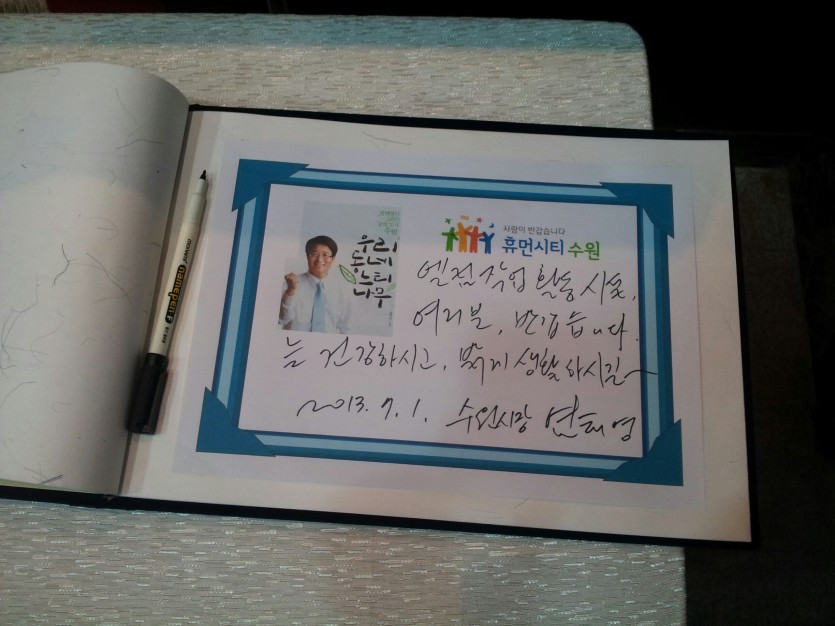 우리
동네
느티
나무
사람이 반갑습니다
휴먼시티 수원
여러분, 반갑습니다.
늘 건강하시고, 밝게 생활하시길~
2013. 7. 1. 수원시장 염태영
monami namepen F